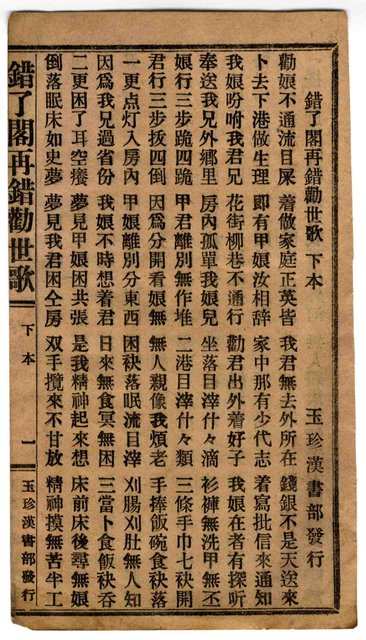 錯了閣再錯勸世歌 下本 玉珍漢書部發行
勸娘不通流目屎 着做家庭正英皆 我君無去外所在 錢銀不是天送來
卜去下港做生理 即有甲娘汝相辞 家中那有少代志 着寫批信來通知
我娘吩咐我君兄 花街柳巷不通行 勸君出外着好子 我娘在者有探听
奉送我兄外鄉里 房內孤單我娘兒 坐落目滓什々滴 衫褲無洗甲無丕
娘行三步跪四跪 甲君離別無作堆 二港目滓什々類 三條手巾七袂開
君行三步拔四倒 因為分開看娘無 無人親像我煩老 手捧飯碗食袂落
一更点灯入房內 甲娘離別分東西 困袂落眠流目滓 刈腸刈肚無人知
因為我兄過省份 我娘不時想着君 日來無食冥無困 三當卜食飯袂吞
二更困了耳空癢 夢見甲娘困共張 是我精神起來想 床前床後尋無娘
倒落眠床如史夢 夢見我君困仝房 双手攬來不甘放 精神摸無苦半工
錯了閣再錯勸世歌 下本 一 玉珍漢書部發行